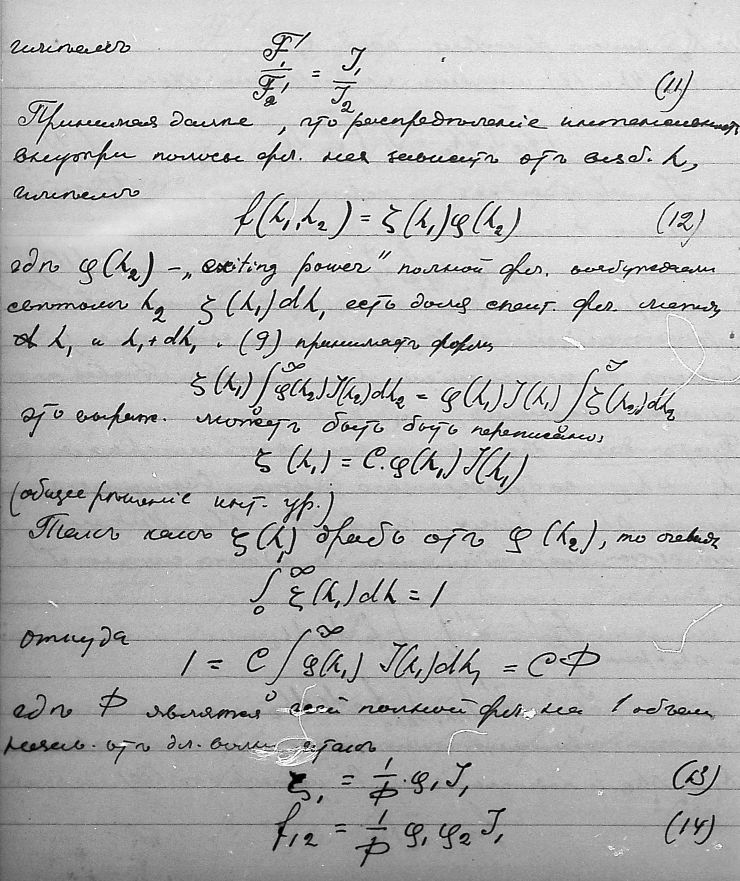 имѣемъ
F₁'/F₂' = J₁/J₂ (11)
Принимая далѣе, что распредѣленіе интенсивности
внутри полосы фл. не зависитъ отъ возб. λ,
имѣемъ
f(λ₁,λ₂) = ζ(λ₁)φ(λ₂) (12)
гдѣ φ(λ₂) – „exciting power" полной фл. возбуждаем
свѣтомъ λ₂ ζ(λ₁)dλ₁ есть доля спект. фл. между
λ₁ и λ₁+dλ₁. (9) принимаетъ форму
ζ(λ₁)∫₀^∞ φ(λ₂)J(λ₂)dλ₂ = φ(λ₁)J(λ₁)∫₀^∞ ζ(λ₂)dλ₂
это выраж. можетъ быть быть переписано,
ζ(λ₁) = C.φ(λ₁)J(λ₁)
(общее рѣшеніе инт. ур.)
Такъ какъ ζ(λ₁) дробь отъ φ(λ₂), то очевид
∫₀^∞ ζ(λ₁)dλ = 1
откуда
1 = C∫₀^∞ φ(λ₁) J(λ₁)dλ₁ = CΦ
гдѣ Φ является полной фл. на 1 объем
отъ дл. волны итакъ
ζ₁ = 1/Φ · φ₁J₁ (13)
f₁₂ = 1/Φ φ₁φ₂J₁ (14)